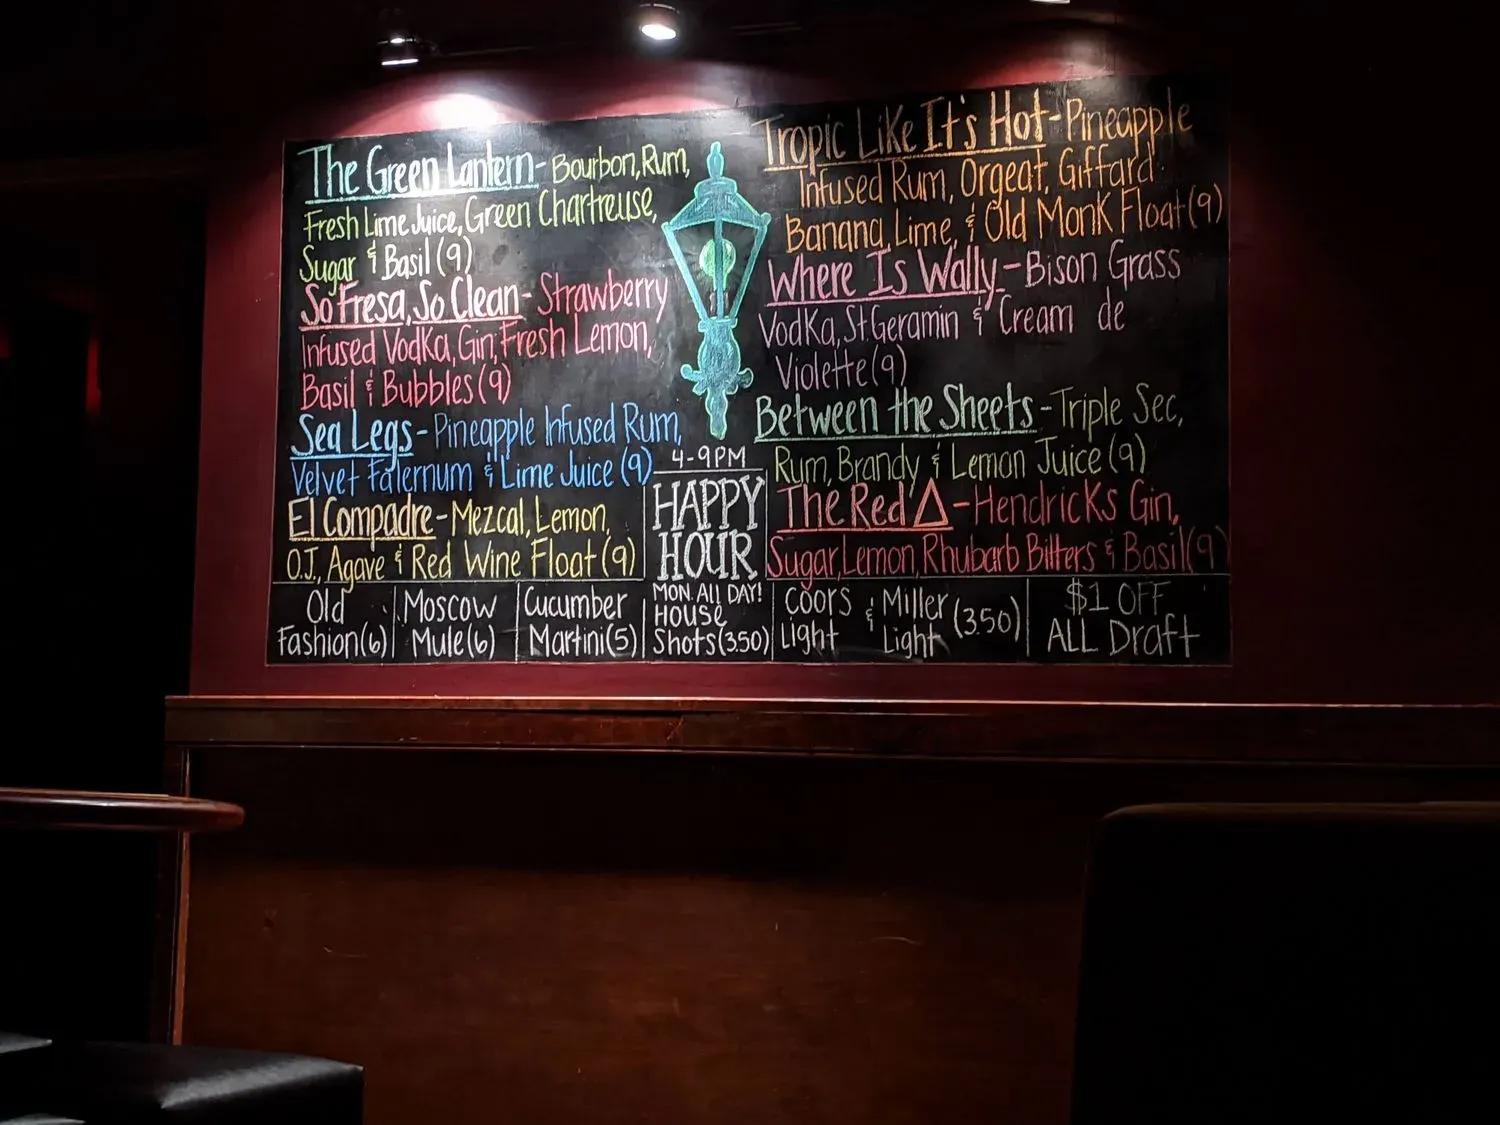 The Green Lantern - Bourbon, Rum,
Fresh Lime Juice, Green Chartreuse,
Sugar & Basil (9)
So Fresa, So Clean - Strawberry
Infused Vodka, Gin, Fresh Lemon,
Basil & Bubbles (9)
Sea Legs - Pineapple Infused Rum,
Velvet Falernum & Lime Juice (9)
El Compadre - Mezcal, Lemon,
O.J., Agave & Red Wine Float (9)
Tropic Like It's Hot - Pineapple
Infused Rum, Orgeat, Giffard
Banana, Lime, & Old Monk Float (9)
Where Is Wally - Bison Grass
Vodka, St. Geramin & Cream de
Violette (9)
Between the Sheets - Triple Sec,
Rum, Brandy & Lemon Juice (9)
The Red Δ - Hendricks Gin,
Sugar, Lemon, Rhubarb Bitters & Basil (9)
4-9PM
HAPPY
HOUR
MON. All DAY!
Old
Fashion (6)
Moscow
Mule (6)
Cucumber
Martini (5)
House
Shots (3.50)
Coors
Light
& Miller
Light
(3.50)
$1 OFF
ALL Draft